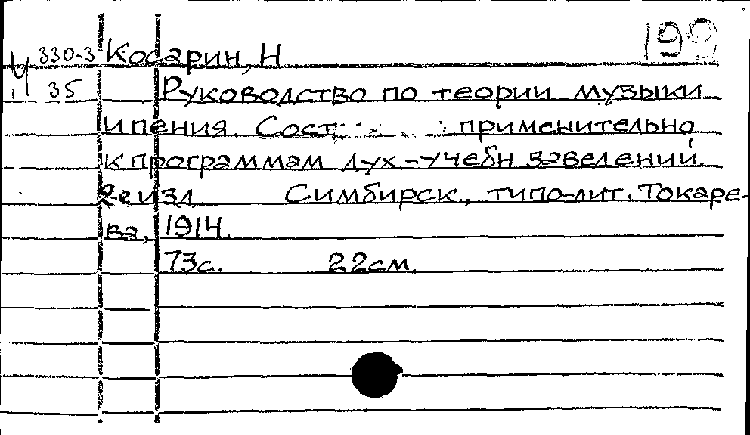 330-3 Косарин, Н
35 Руководство по теории музыки
и пения. Сост. применительно
к программам дух-учебн заведений.
2е изд Симбирск, типо-лит. Токаре-
ва, 1914.
73с. 22см.